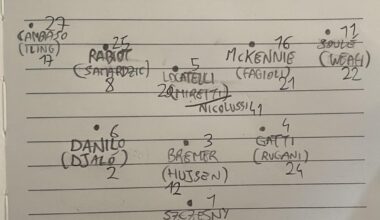 27
CAMBIASO
(ILING)
17
25
RABIOT
(SAMARDZIC)
8
5
LOCATELLI
20 (MIRETTI)
NICOLUSSI 41
16
MCKENNIE
(FAGIOLI)
21
11
SOULÈ
(WEAH)
22
6
DANILO
(DJALÓ)
2
3
BREMER
(HUJSEN)
12
4
GATTI
(RUGANI)
24
1
SZCZESNY